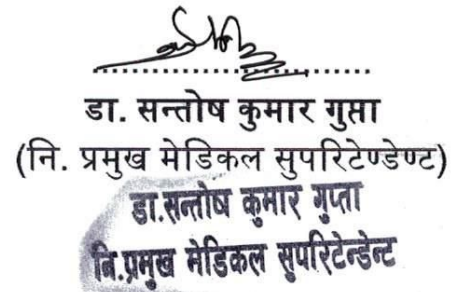 डा. सन्तोष कुमार गुप्ता
(नि. प्रमुख मेडिकल सुपरिटेण्डेण्ट)
डा.सन्तोष कुमार गुप्ता
नि.प्रमुख मेडिकल सुपरिटेन्डेन्ट